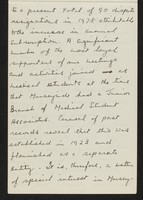 to a present total of 90 despite
resignations in 1978 attributable
to the increase in annual
subscription. A significant
number of the most loyal
supporters of our meetings
and activities joined as
medical students at the time
that Merseyside had a Junior
Branch of Medical Student
Associates. Perusal of past
records reveal that this was
established in 1923 and
flourished as a separate
entity. It is, therefore, a matter
of special interest in Mersey-